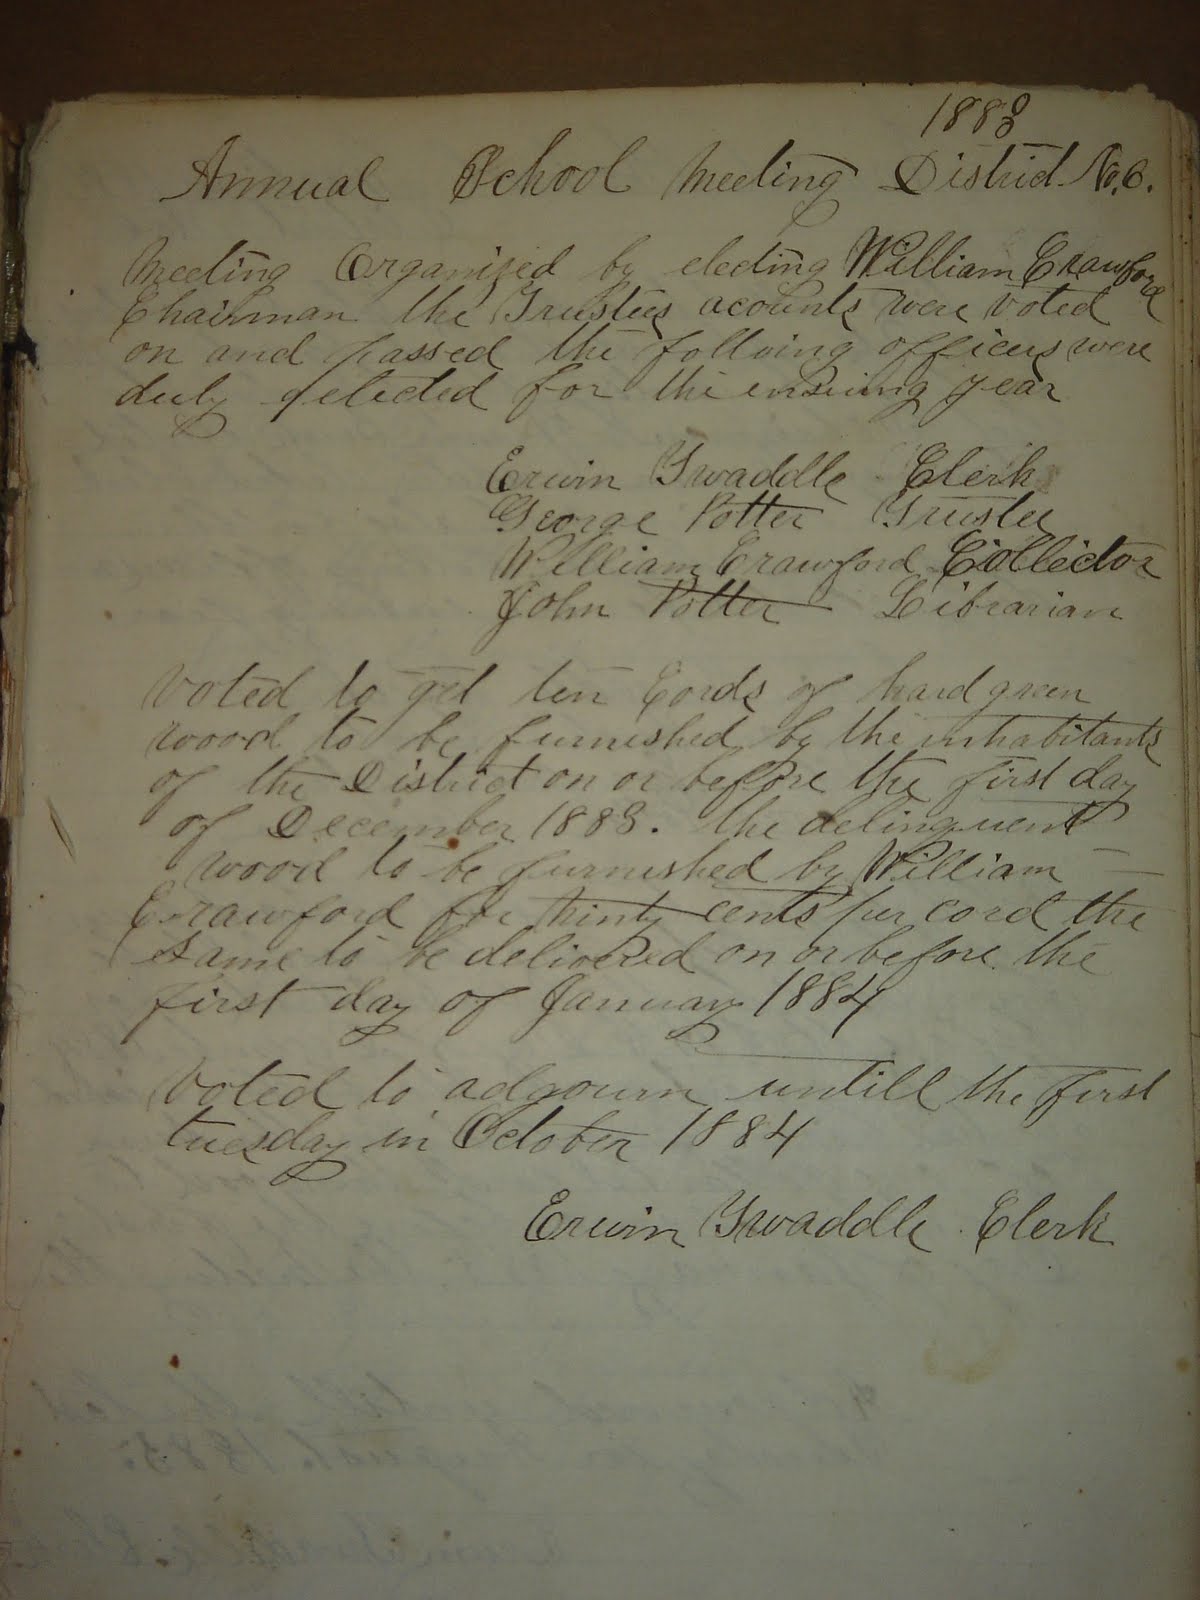 1883
Annual School meeting District No. 6.
Meeting Organized by electing William Crawford
Chairman the Trustees acounts were voted
on and passed the follwing officers were
duly selected for the ensuing year
Erwin Twaddle Clerk
George Potter Trustee
William Crawford Collector
John Potter Librarian
Voted to get ten Cords of hard green
wood to be furnished by the inhabitants
of the District on or before the first day
of December 1883. the delinquent
wood to be furnished by William
Crawford for ninty cents per cord the
same to be delivered on or before the
first day of January 1884
Voted to adgourn untill the first
tuesday in October 1884
Erwin Twaddle Clerk